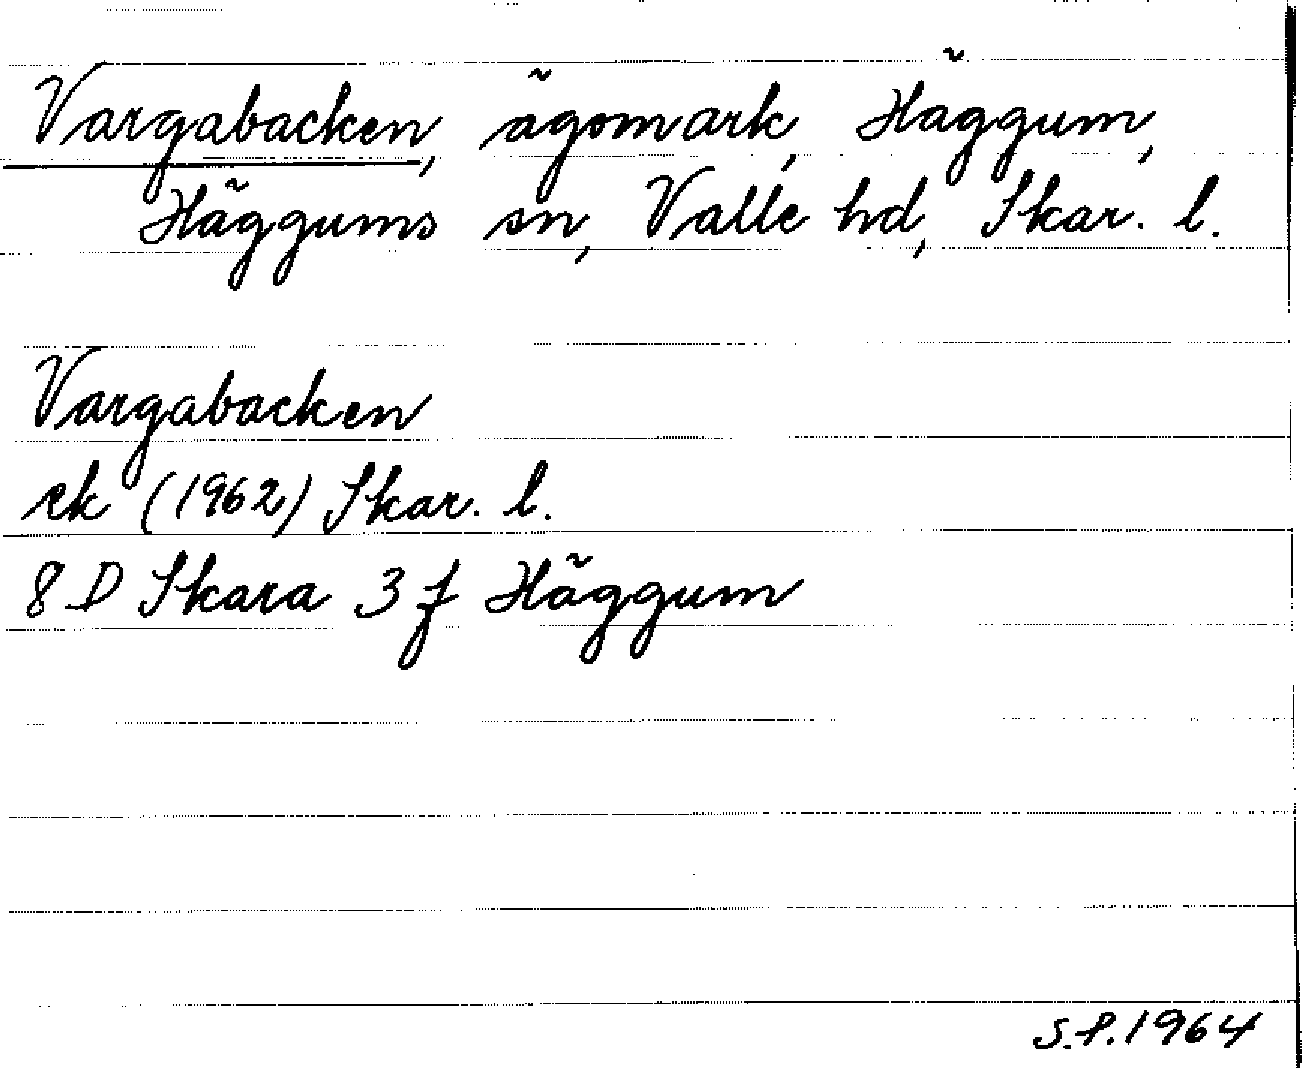 Vargabacken, ägomark, Häggum,
Häggums sn, Valle hd, Skar. l.
Vargabacken
ek (1962) Skar. l.
8 D Skara 3 f Häggum
S.P. 1964